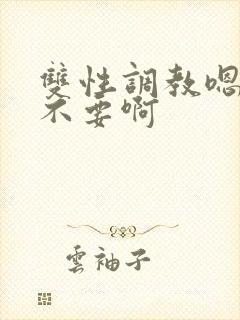 雙性調教嗯
不要啊
雲袖子